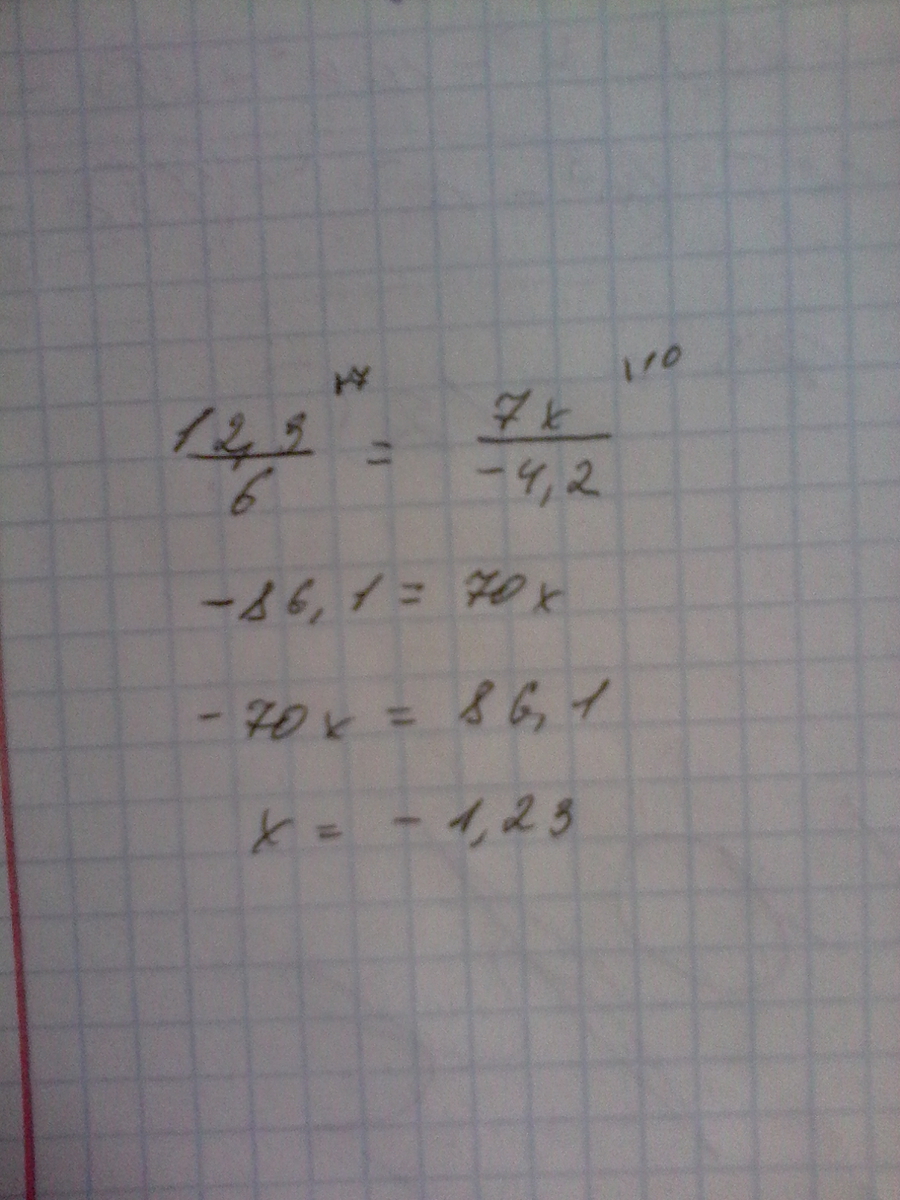 12,3 / 6 |-7 = 7x / -4,2 |10
-86,1 = 70x
-70x = 86,1
x = -1,23